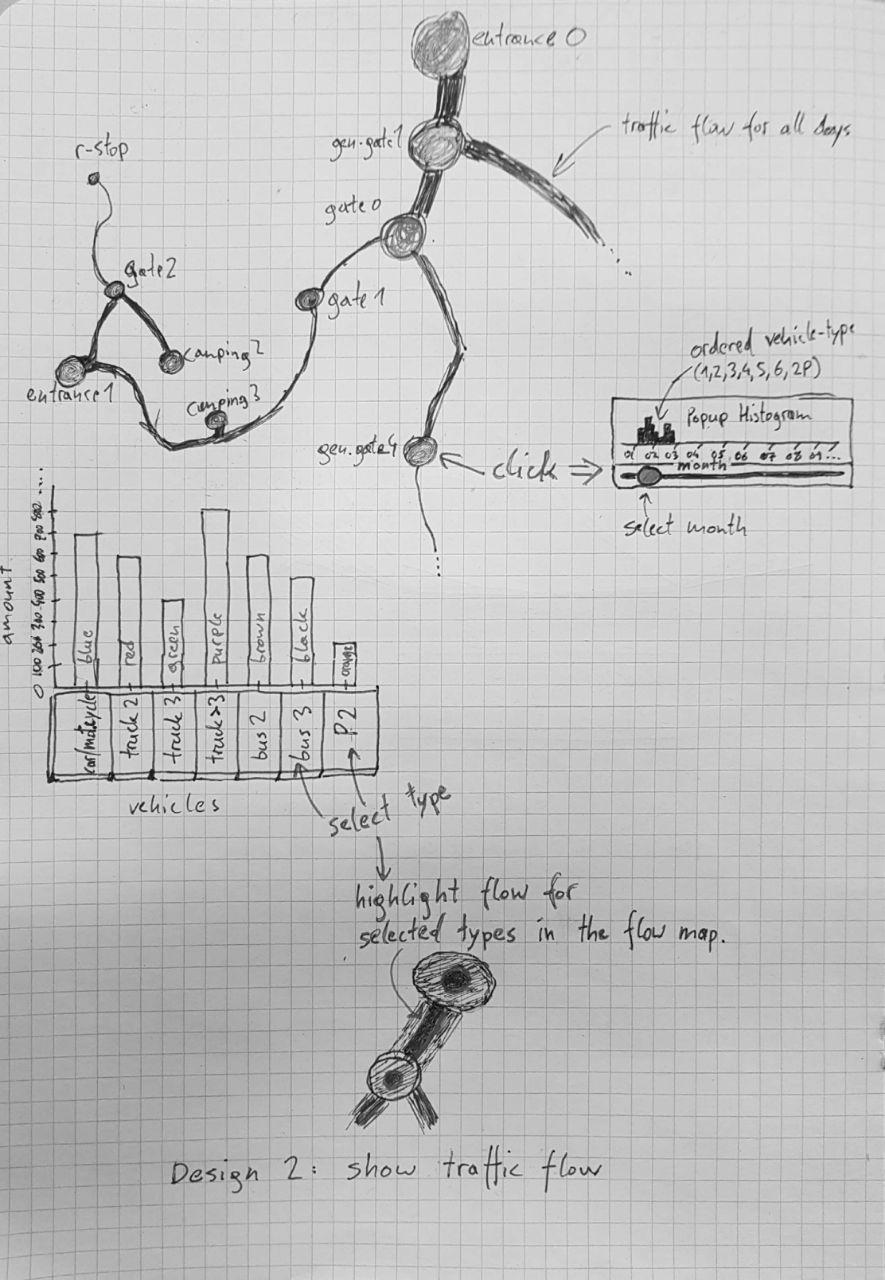 entrance 0
traffic flow for all days
r-stop
gen.gate1
gate 0
gate2
gate 1
camping2
entrance1
camping3
gen.gate4
click
ordered vehicle-type
(1,2,3,4,5,6,2P)
Popup Histogram
01 02 03 04 05 06 07 08 09...
month
select month
amount
0 100 200 300 400 500 600 700 800 ....
blue
red
green
purple
brown
black
orange
car/motorcycle
truck 2
truck 3
truck>3
bus 2
bus 3
P2
vehicles
select type
highlight flow for
selected types in the flow map.
Design 2: show traffic flow